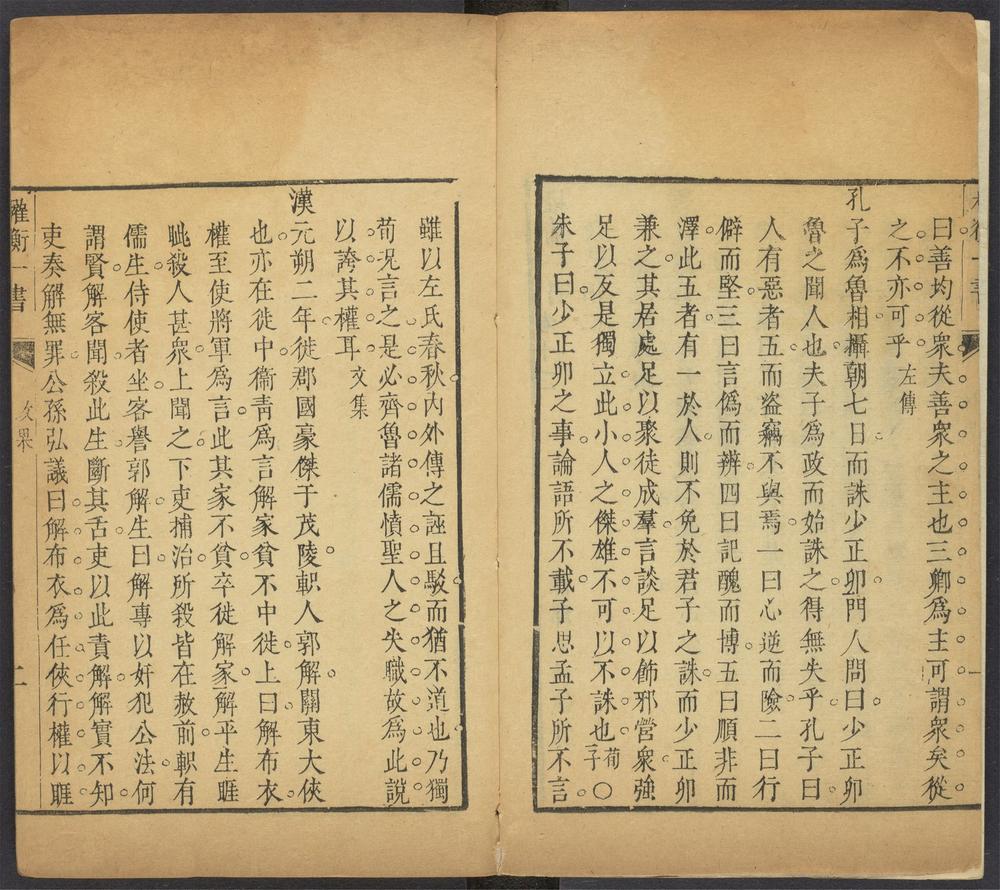 曰善均從衆夫善衆之主也三卿爲主可謂衆矣從
之不亦可乎 左傳
孔子爲魯相攝朝七日而誅少正卯門人問曰少正卯
魯之聞人也夫子爲政而始誅之得無失乎孔子曰
人有惡者五而盜竊不與焉一曰心逆而險二曰行
僻而堅三曰言僞而辨四曰記醜而博五曰順非而
澤此五者有一於人則不免於君子之誅而少正卯
兼之其居處足以聚徒成羣言談足以飾邪營衆強
足以反是獨立此小人之傑雄不可以不誅也 荀子 〇
朱子曰少正卯之事論語所不載子思孟子所不言
雖以左氏春秋内外傳之誣且駁而猶不道也乃獨
荀况言之是必齊魯諸儒憤聖人之失職故爲此說
以誇其權耳 文集
漢元朔二年徙郡國豪傑于茂陵軹人郭解關東大俠
也亦在徙中衞青爲言解家貧不中徙上曰解布衣
權至使將軍爲言此其家不貧卒徙解家解平生睚
眦殺人甚衆上聞之下吏捕治所殺皆在赦前軹有
儒生侍使者坐客譽郭解生曰解專以奸犯公法何
謂賢解客聞殺此生斷其舌吏以此責解解實不知
吏奏解無罪公孫弘議曰解布衣爲任俠行權以睚
權衡一書
二